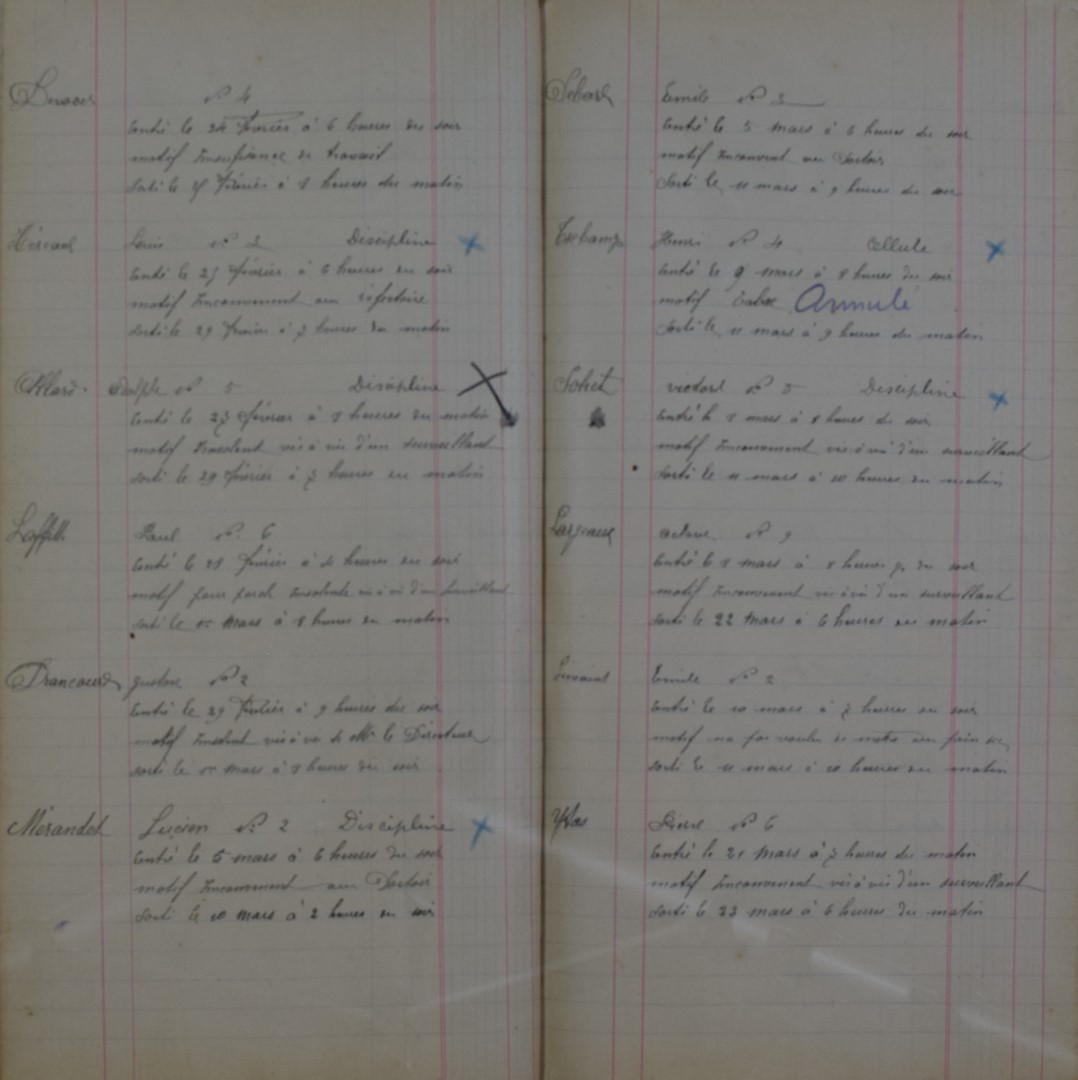 N° 4
Entré le 24 février à 6 heures du soir
motif Insufisance de travail
Sorti le février à 8 heures du matin
N° 2 Discipline
Entré le février à 6 heures du soir
motif Inconvenent au réfectoire
Sorti le 29 février à 7 heures du matin
Allard Adolphe N° 5 Discipline
Entré le février à 8 heures du matin
motif Insolent vis à vis d'un surveillant
Sorti le 29 février à 7 heures du matin
Paul N° 6
Entré le février à heures du soir
motif pour parole Insolente vis à vis d'un surveillant
Sorti le mars à 8 heures du matin
Drancourt gustave N° 2
Entré le 29 février à 9 heures du soir
motif Insolent vis à vis de Mr le Directeur
Sorti le mars à 8 heures du soir
Mérandet Lucien N° 2 Discipline
Entré le 5 mars à 6 heures du soir
motif Inconvenent au Dortoir
Sorti le 10 mars à 2 heures du soir
Emile N°
Entré le 5 mars à 6 heures du soir
motif Inconvenent au Dortoir
Sorti le 11 mars à 9 heures du soir
Henri N° 4 Cellule
Entré le 9 mars à 8 heures du soir
motif Tabac Annulé
Sorti le 11 mars à 9 heures du matin
Victord N° 5 Discipline
Entré le 8 mars à 8 heures du soir
motif Inconvenent vis à vis d'un surveillant
Sorti le 11 mars à 10 heures du matin
Largeaux octave N° 9
Entré le 8 mars à 8 heures du soir
motif Inconvenent vis à vis d'un surveillant
Sorti le 22 mars à 6 heures du matin
Emile N° 2
Entré le 10 mars à 7 heures du soir
motif na pas voulu se metre au
Sorti le 11 mars à 10 heures du matin
Yvas Pierre N° 6
Entré le 21 mars à 7 heures du matin
motif Inconvenent vis à vis d'un surveillant
Sorti le 23 mars à 6 heures du matin